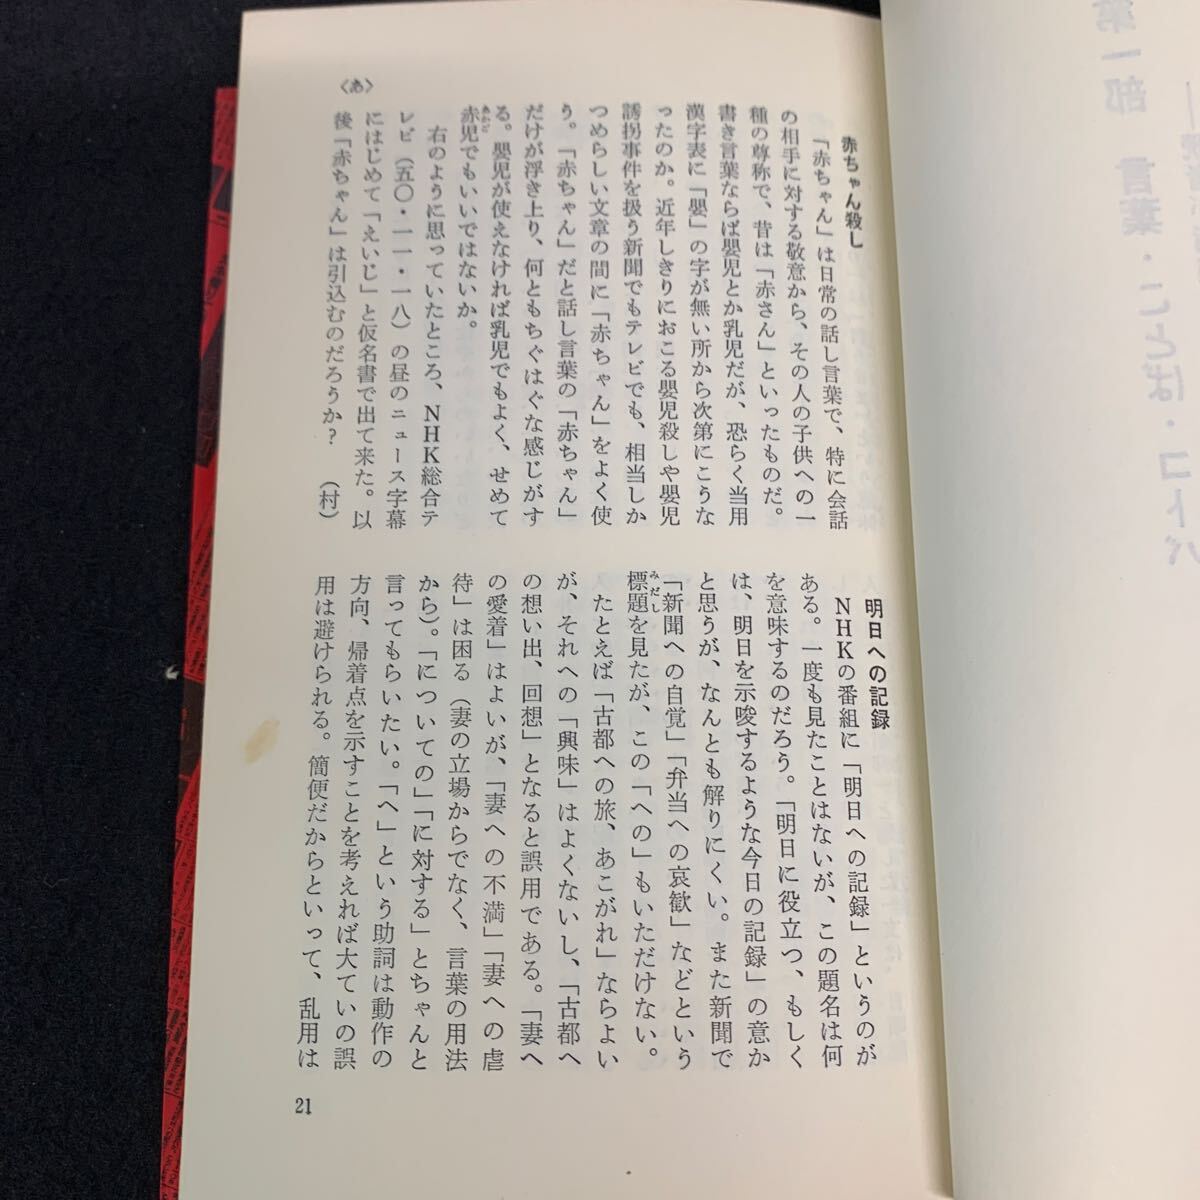 〈あ〉
赤ちゃん殺し
「赤ちゃん」は日常の話し言葉で、特に会話
の相手に対する敬意から、その人の子供への一
種の尊称で、昔は「赤さん」といったものだ。
書き言葉ならば嬰児とか乳児だが、恐らく当用
漢字表に「嬰」の字が無い所から次第にこうな
ったのか。近年しきりにおこる嬰児殺しや嬰児
誘拐事件を扱う新聞でもテレビでも、相当しか
つめらしい文章の間に「赤ちゃん」をよく使
う。「赤ちゃん」だと話し言葉の「赤ちゃん」
だけが浮き上り、何ともちぐはぐな感じがす
る。嬰児が使えなければ乳児でもよく、せめて
赤児でもいいではないか。
あかご
右のように思っていたところ、NHK総合テ
レビ(五〇・一一・一八)の昼のニュース字幕
にはじめて「えいじ」と仮名書で出て来た。以
後「赤ちゃん」は引込むのだろうか？
(村)
明日への記録
NHKの番組に「明日への記録」というのが
ある。一度も見たことはないが、この題名は何
を意味するのだろう。「明日に役立つ、もしく
は、明日を示唆するような今日の記録」の意か
と思うが、なんとも解りにくい。また新聞で
「新聞への自覚」「弁当への哀歓」などという
標題を見たが、この「への」もいただけない。
みだし
たとえば「古都への旅、あこがれ」ならよい
が、それへの「興味」はよくないし、「古都へ
の想い出、回想」となると誤用である。「妻へ
の愛着」はよいが、「妻への不満」「妻への虐
待」は困る(妻の立場からでなく、言葉の用法
から)。「についての」「に対する」とちゃんと
言ってもらいたい。「へ」という助詞は動作の
方向、帰着点を示すことを考えれば大ていの誤
用は避けられる。簡便だからといって、乱用は
21
第一部 言葉・ことば・コトバ